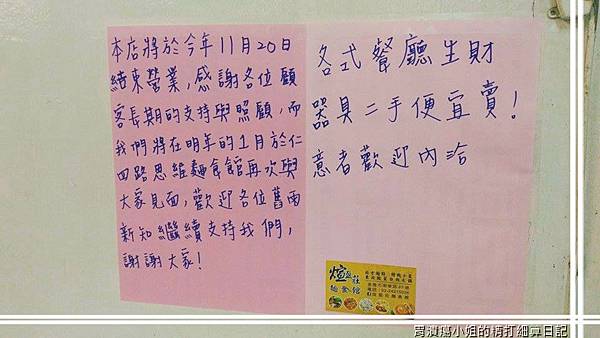 本店將於今年11月20日
結束營業,感謝各位顧
客長期的支持與照顧,而
我們將在明年的1月於仁
四路思維麵食館再次與
大家見面,歡迎各位舊雨
新知繼續支持我們,
謝謝大家!
各式餐廳生財
器具二手便宜賣!
意者歡迎內洽
麵食館
周濆瑀小姐的精打細算日記